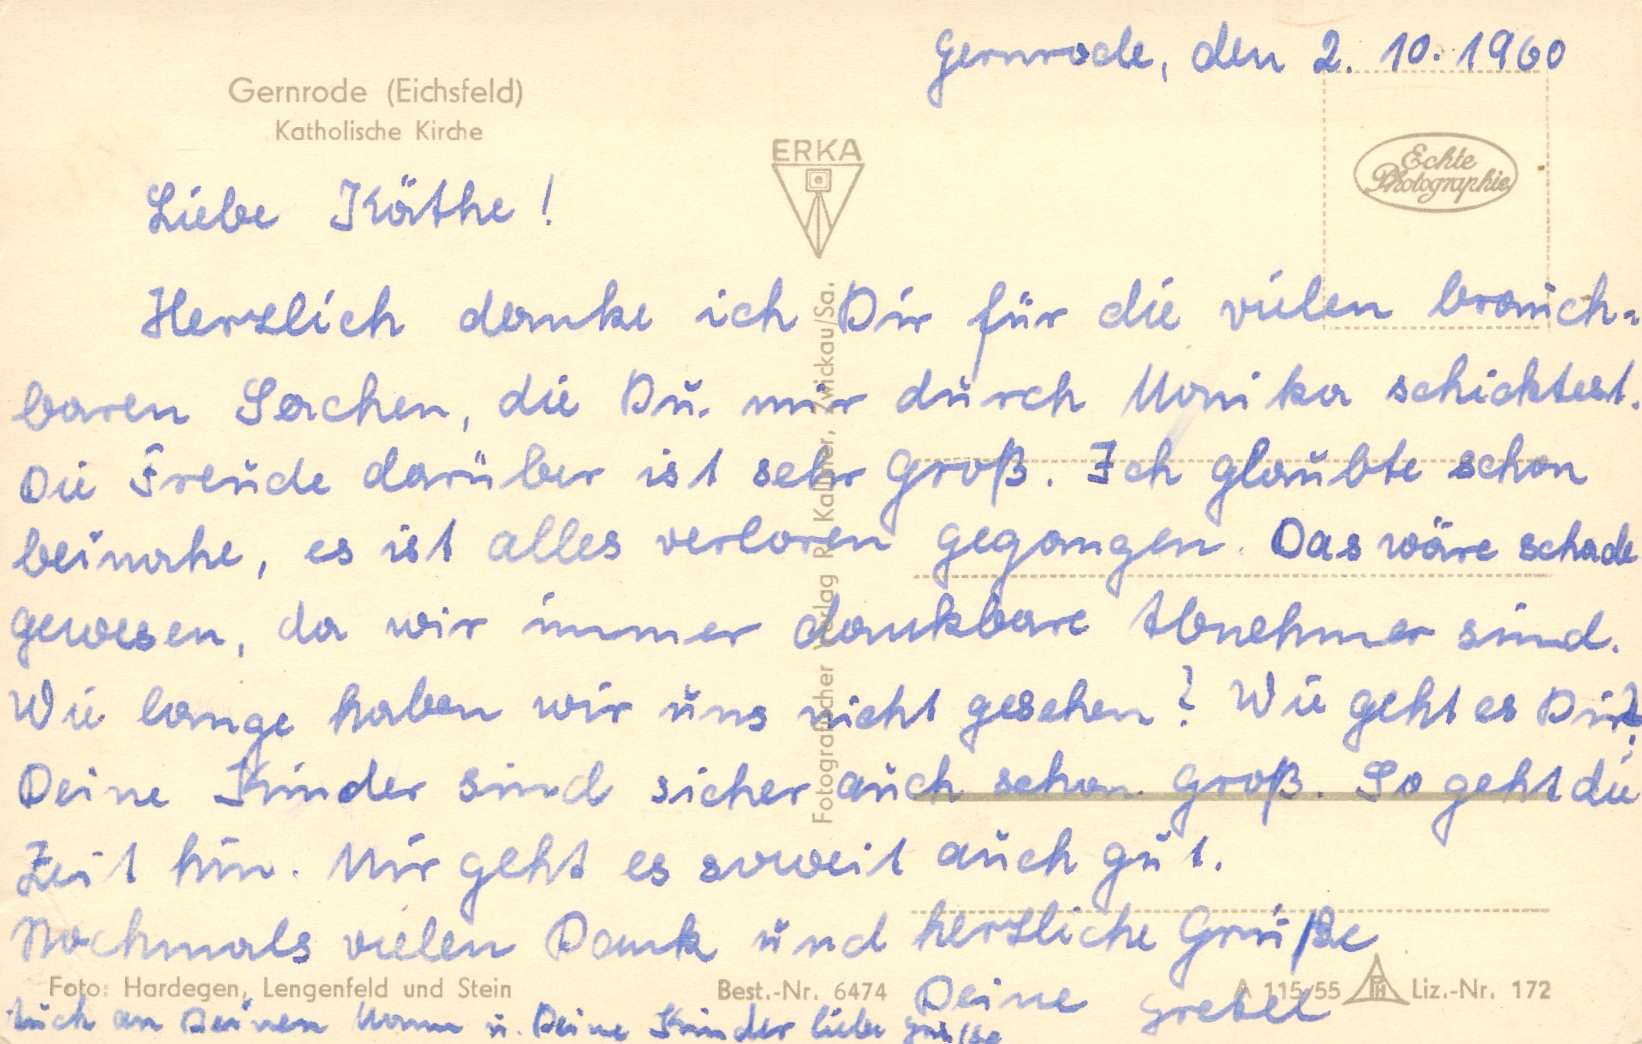 Gernrode, den 2. 10. 1960
Gernrode (Eichsfeld)
Katholische Kirche
ERKA
Echte
Photographie
Liebe Käthe!
Herzlich danke ich Dir für die vielen brauch=
baren Sachen, die Du mir durch Monika schicktest.
Die Freude darüber ist sehr groß. Ich glaubte schon
beinahe, es ist alles verloren gegangen. Das wäre schade
gewesen, da wir immer dankbare Abnehmer sind.
Wie lange haben wir uns nicht gesehen? Wie geht es Dir?
Deine Kinder sind sicher auch schon groß. So geht die
Zeit hin. Mir geht es soweit auch gut.
Nochmals vielen Dank und herzliche Grüße
Deine Gretel
Auch an Deinen Mann u. Deine Kinder liebe Grüße
Fotografischer Verlag R. Kallmer, Zwickau/Sa.
Foto: Hardegen, Lengenfeld und Stein
Best.-Nr. 6474
A 115/55
Liz.-Nr. 172